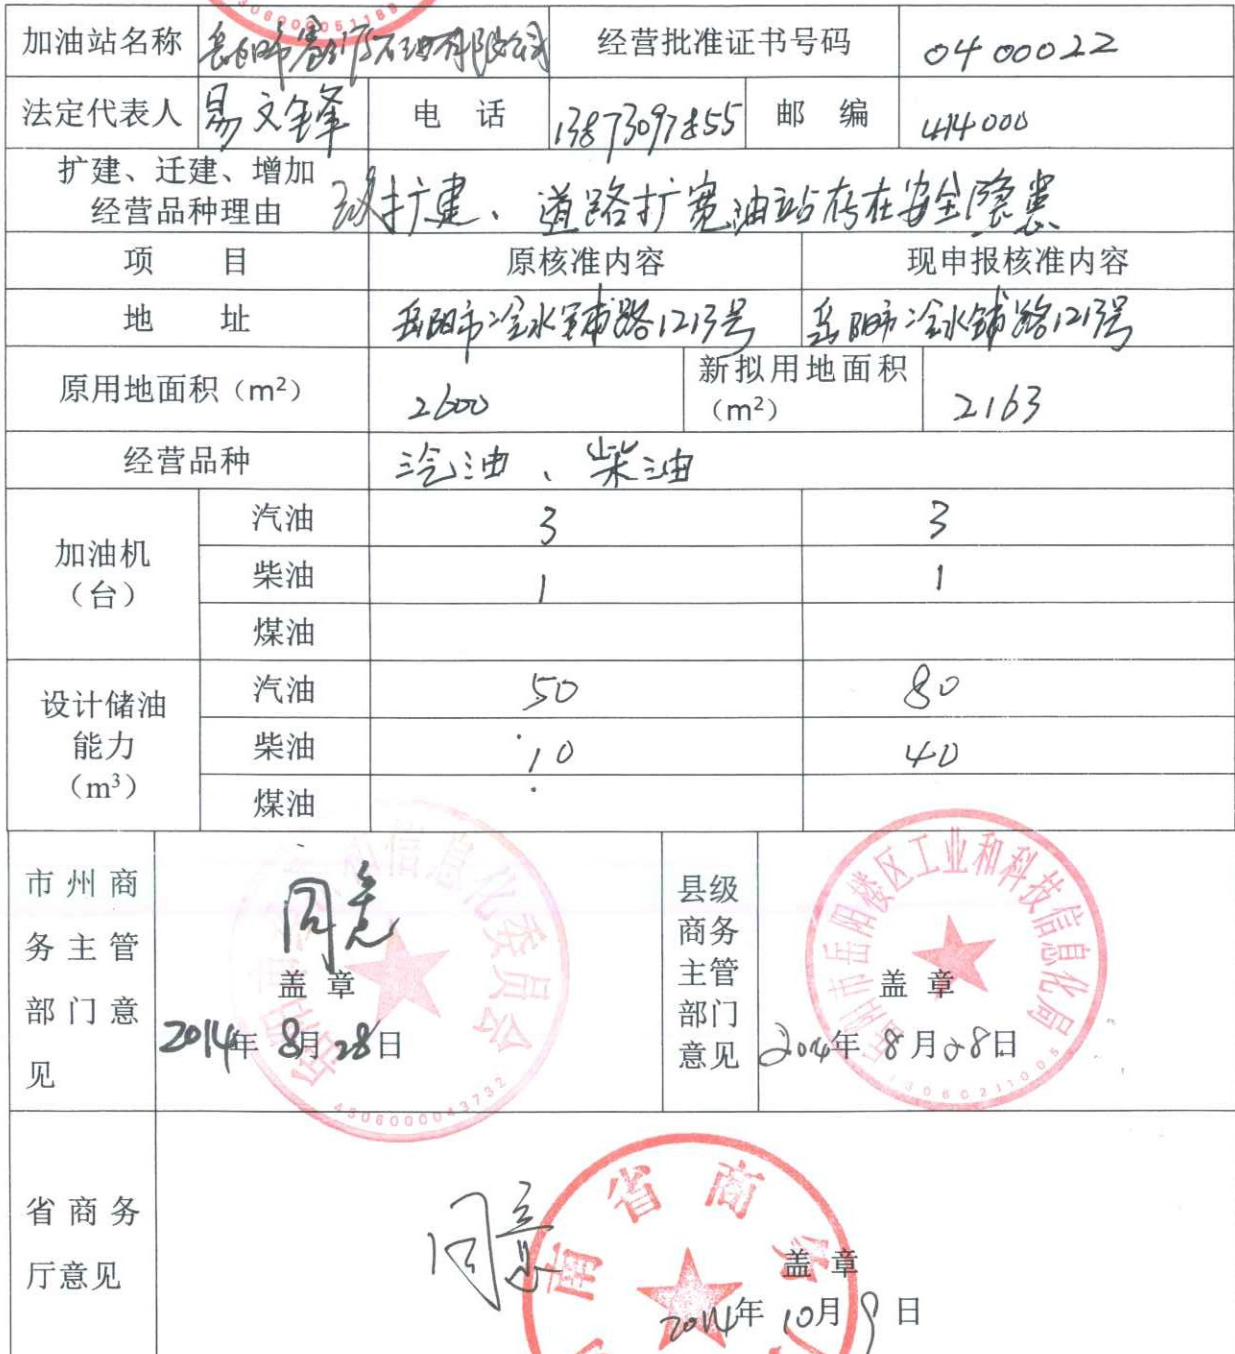 306000051188
加油站名称 岳阳市 石油有限公司 经营批准证书号码 0400022
法定代表人 易文锋 电 话 13873097855 邮 编 414000
扩建、迁建、增加
经营品种理由 改扩建、道路扩宽油站存在安全隐患
项 目 原核准内容 现申报核准内容
地 址 岳阳市冷水铺路1213号 岳阳市冷水铺路1213号
原用地面积（m²） 2600 新拟用地面积
（m²） 2163
经营品种 汽油、柴油
加油机
（台）
汽油 3 3
柴油 1 1
煤油
设计储油
能力
（m³）
汽油 50 80
柴油 10 40
煤油
市州商
务主管
部门意
见
同意
盖 章
2014年 8月 28日
信息化委员会
4306000043732
县级
商务
主管
部门
意见
市岳阳楼区工业和科技信息化局
盖 章
2014年 8月28日
省商务
厅意见
同意
南省商务
盖 章
2014年 10月9日